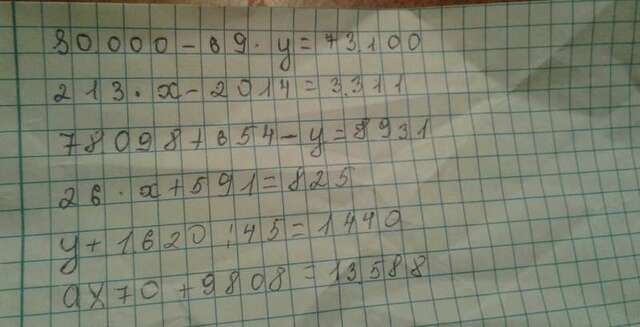 80000 - 69 · y = 73100
213 · x - 2014 = 3311
78098 + 654 - y = 8931
26 · x + 591 = 825
y + 1620 : 45 = 1440
a x 70 + 9808 = 13588